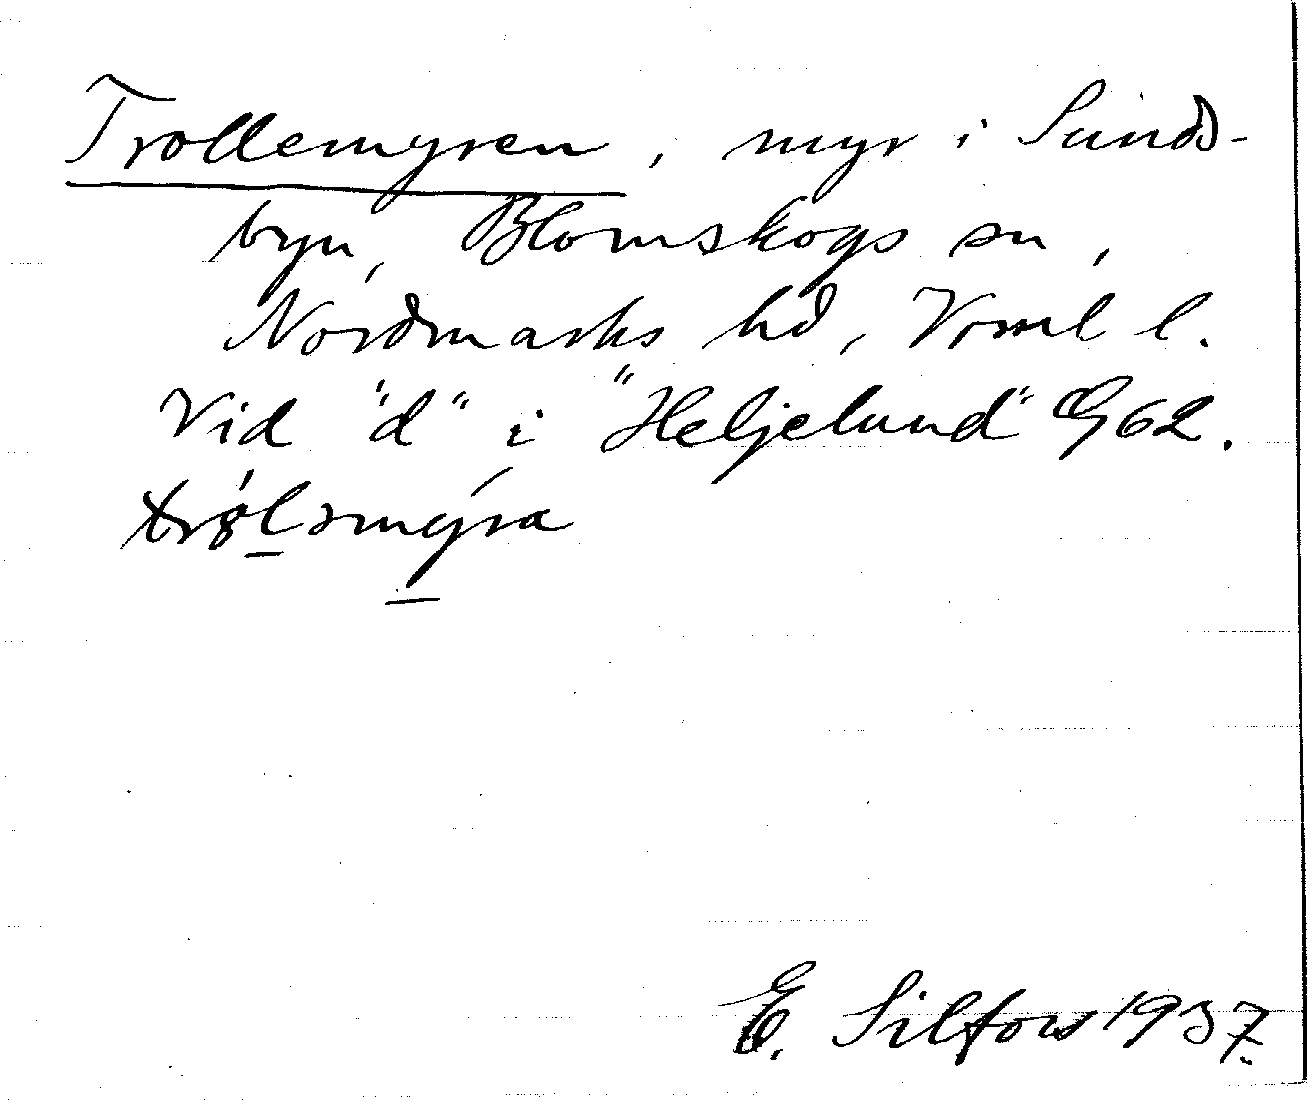 Trollemyren, myr i Sund-
byn, Blomskogs sn,
Nordmarks hd, Vrml l.
Vid "d" i "Heljelund" G62.
E. Silfors 1937.